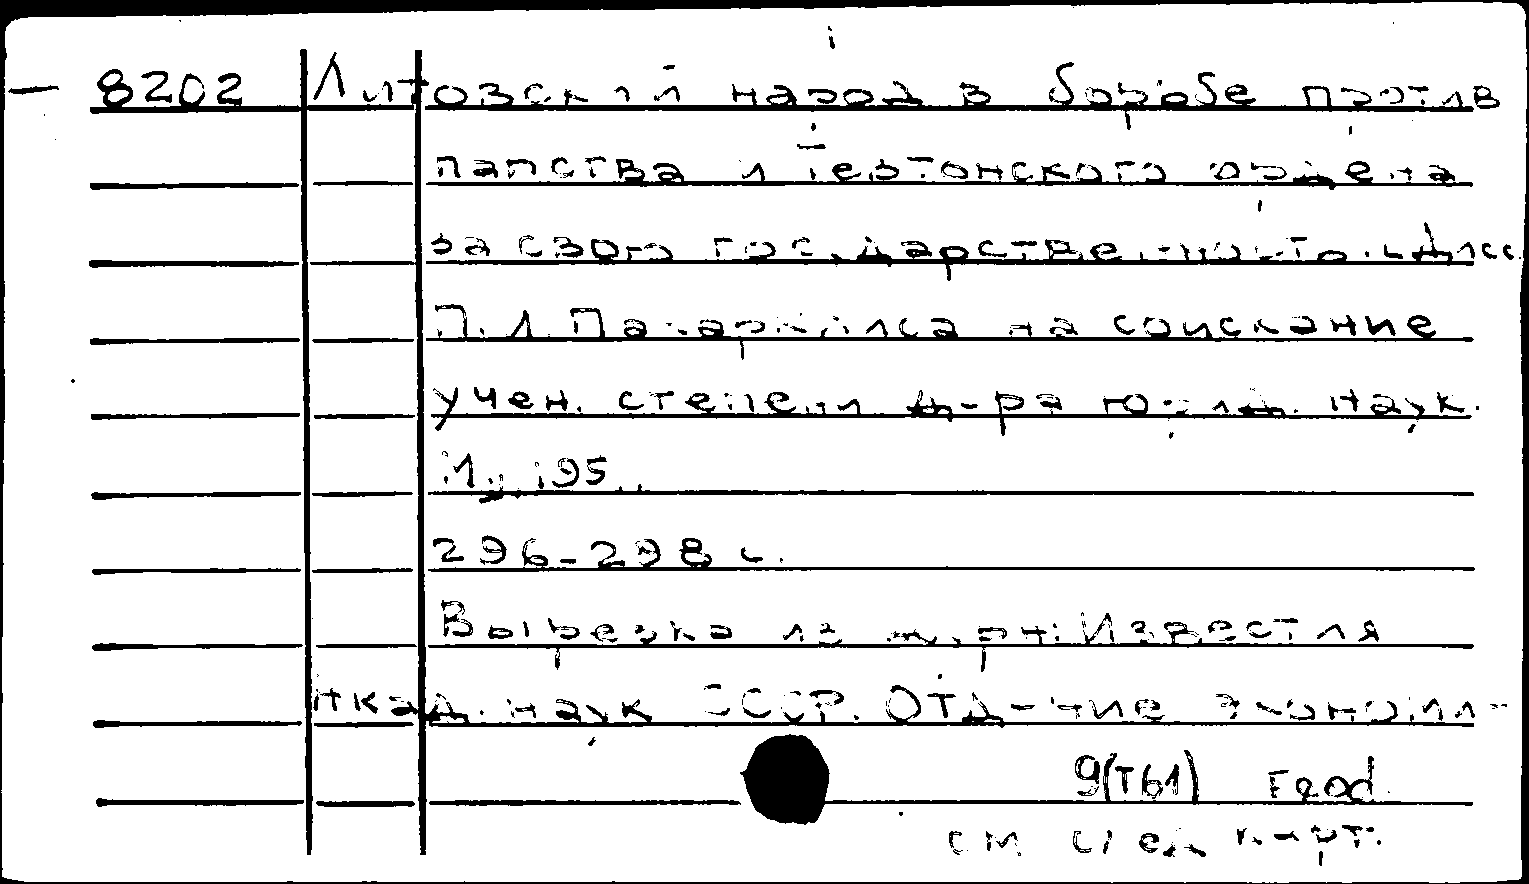 — 8202 Литовский народ в борьбе против
папства и Тевтонского ордена
за свою государственность. Дисс.
П. И. Пакаркписа на соискание
учен. степени д-ра юрид. наук.
М., 195
296-298 с.
Вырезка из журн: Известия
Акад. наук СССР. Отд-ние экономи-
9(Т61) Frod.
см след карт.